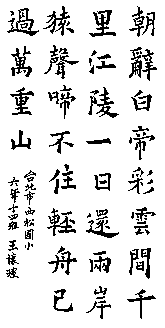 朝辭白帝彩雲間千
里江陵一日還兩岸
猿聲啼不住輕舟已
過萬重山
台北市西松國小
六年十四班 王